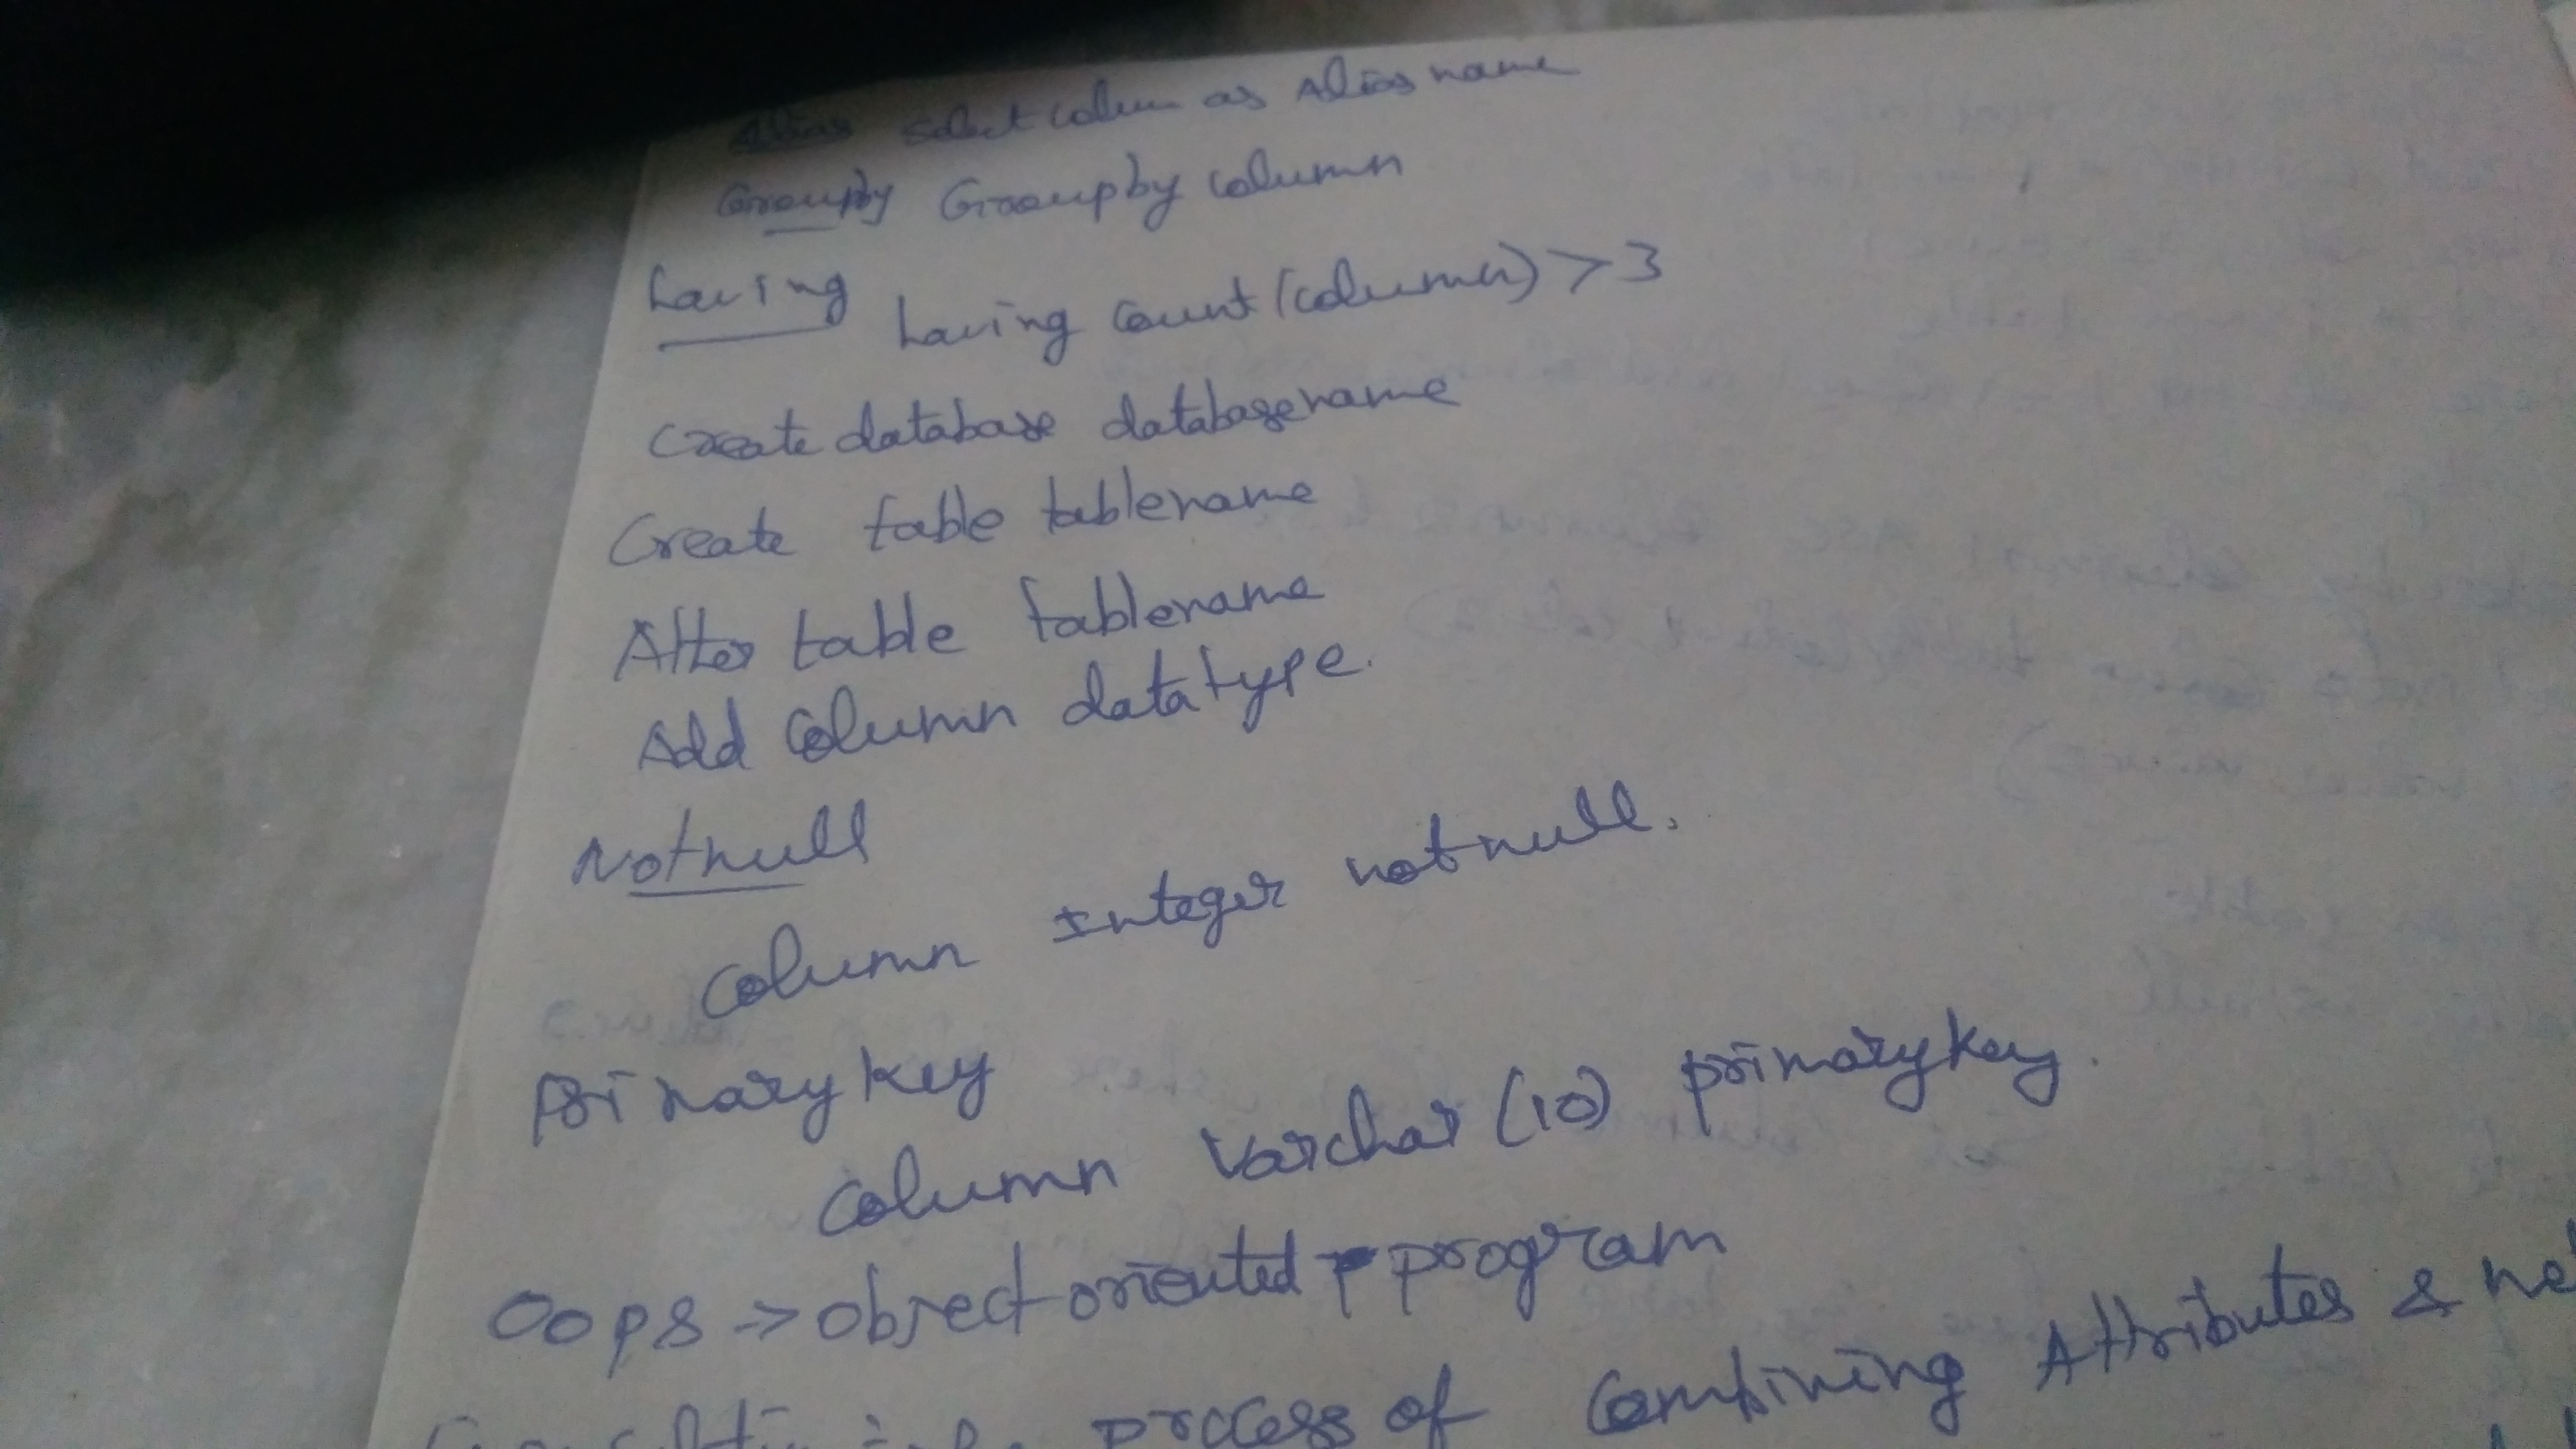 Alias Select colum as Alias name
Groupby Groupby column
having
having count (column) > 3
Create database databasename
Create table tablename
Alter table tablename
Add column datatype.
Notnull
column Integer notnull.
Primary key
column Varchar (10) primarykey.
Oops -> object oriented program
process of Combining Attributes &